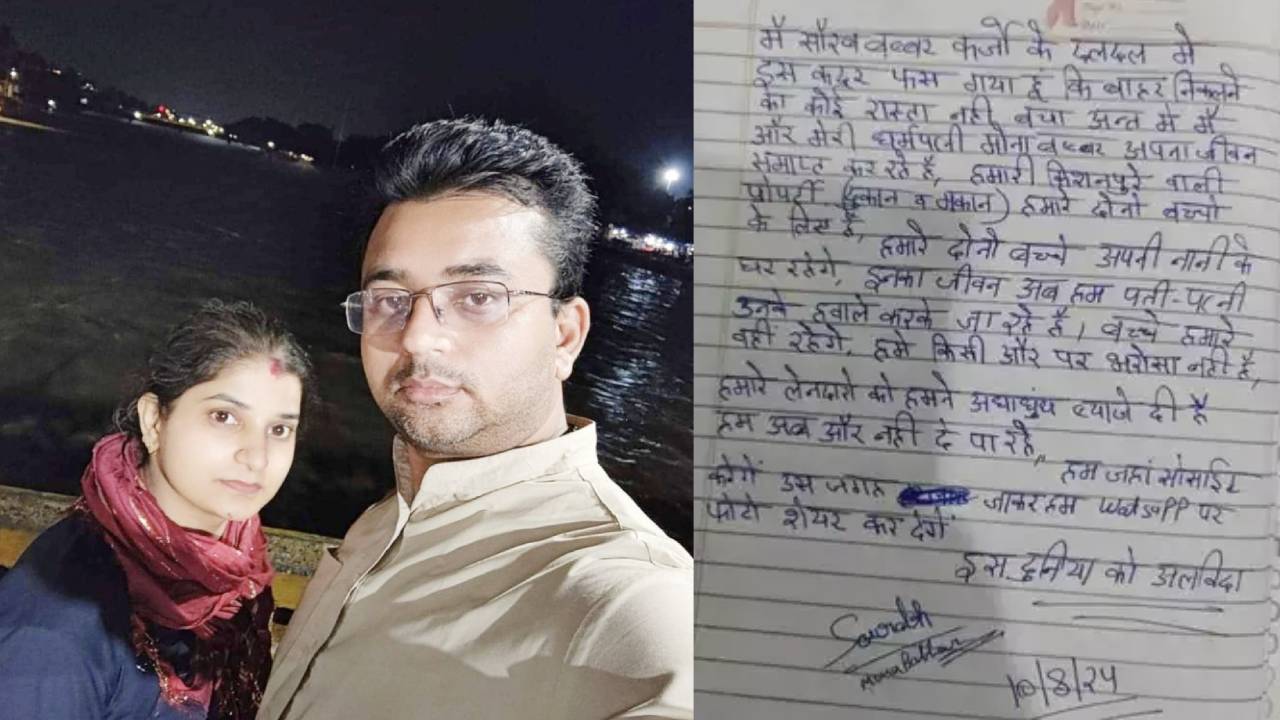 मै सौरव बब्बर कर्जो के दलदल मे
इस कदर फस गया हूं कि बाहर निकलने
का कोई रास्ता नही बचा अन्त मे मै
और मेरी धर्मपत्नी मोना बब्बर अपना जीवन
समाप्त कर रहे है, हमारी किशनपुरे वाली
प्रोपर्टी (दुकान व मकान) हमारे दोनो बच्चो
के लिए है, हमारे दोनो बच्चे अपनी नानी के
घर रहेगे, इनका जीवन अब हम पती-पत्नी
उनके हवाले करके जा रहे है, बच्चे हमारे
वहीं रहेगे, हमे किसी और पर भरोसा नही है,
हमारे लेनदारो को हमने अंधाधुंध ब्याजे दी है
हम अब और नही दे पा रहे,, हम जहां सोसाईट
करेगें उस जगह जाकर हम watsapp पर
फोटो शेयर कर देगें
इस दुनिया को अलविदा
Sourabh
Mona Babbar
10/8/24